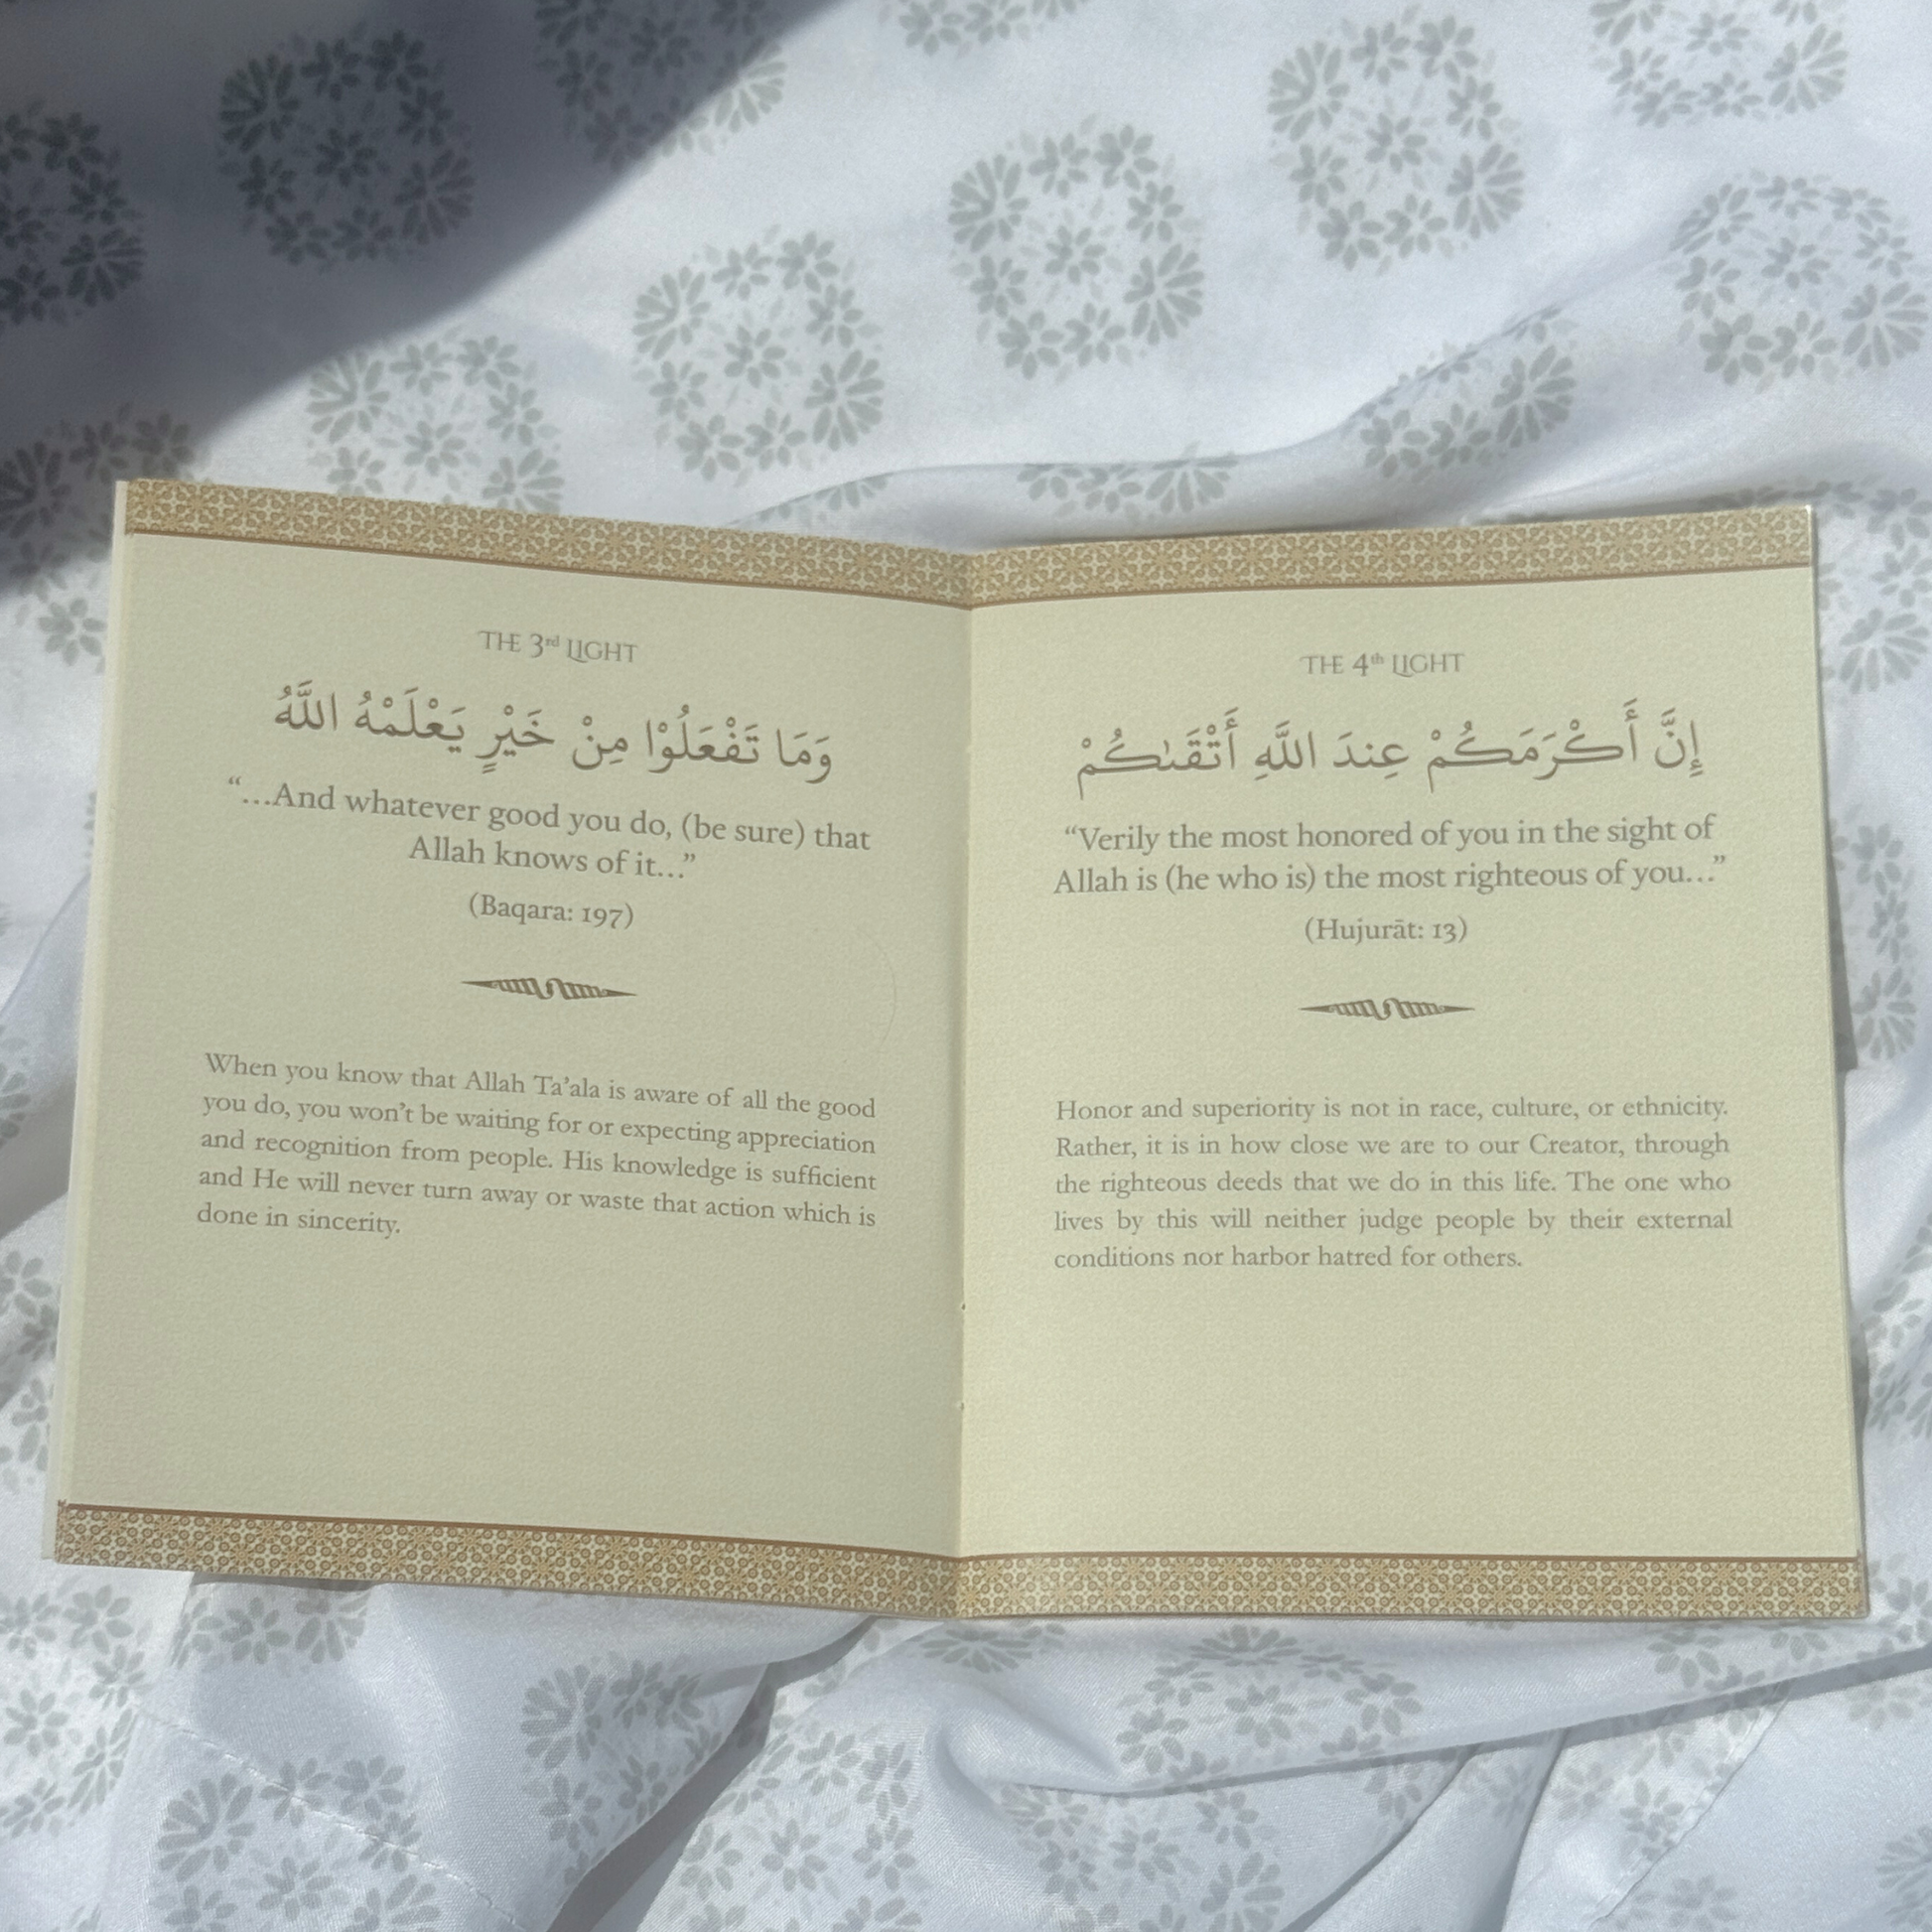 THE 3rd LIGHT
وَمَا تَفْعَلُوْا مِنْ خَيْرٍ يَعْلَمْهُ اللَّهُ
“...And whatever good you do, (be sure) that
Allah knows of it...”
(Baqara: 197)
When you know that Allah Ta’ala is aware of all the good
you do, you won’t be waiting for or expecting appreciation
and recognition from people. His knowledge is sufficient
and He will never turn away or waste that action which is
done in sincerity.
THE 4th LIGHT
إِنَّ أَكْرَمَكُمْ عِندَ اللَّهِ أَتْقَىٰكُمْ
“Verily the most honored of you in the sight of
Allah is (he who is) the most righteous of you...”
(Hujurāt: 13)
Honor and superiority is not in race, culture, or ethnicity.
Rather, it is in how close we are to our Creator, through
the righteous deeds that we do in this life. The one who
lives by this will neither judge people by their external
conditions nor harbor hatred for others.